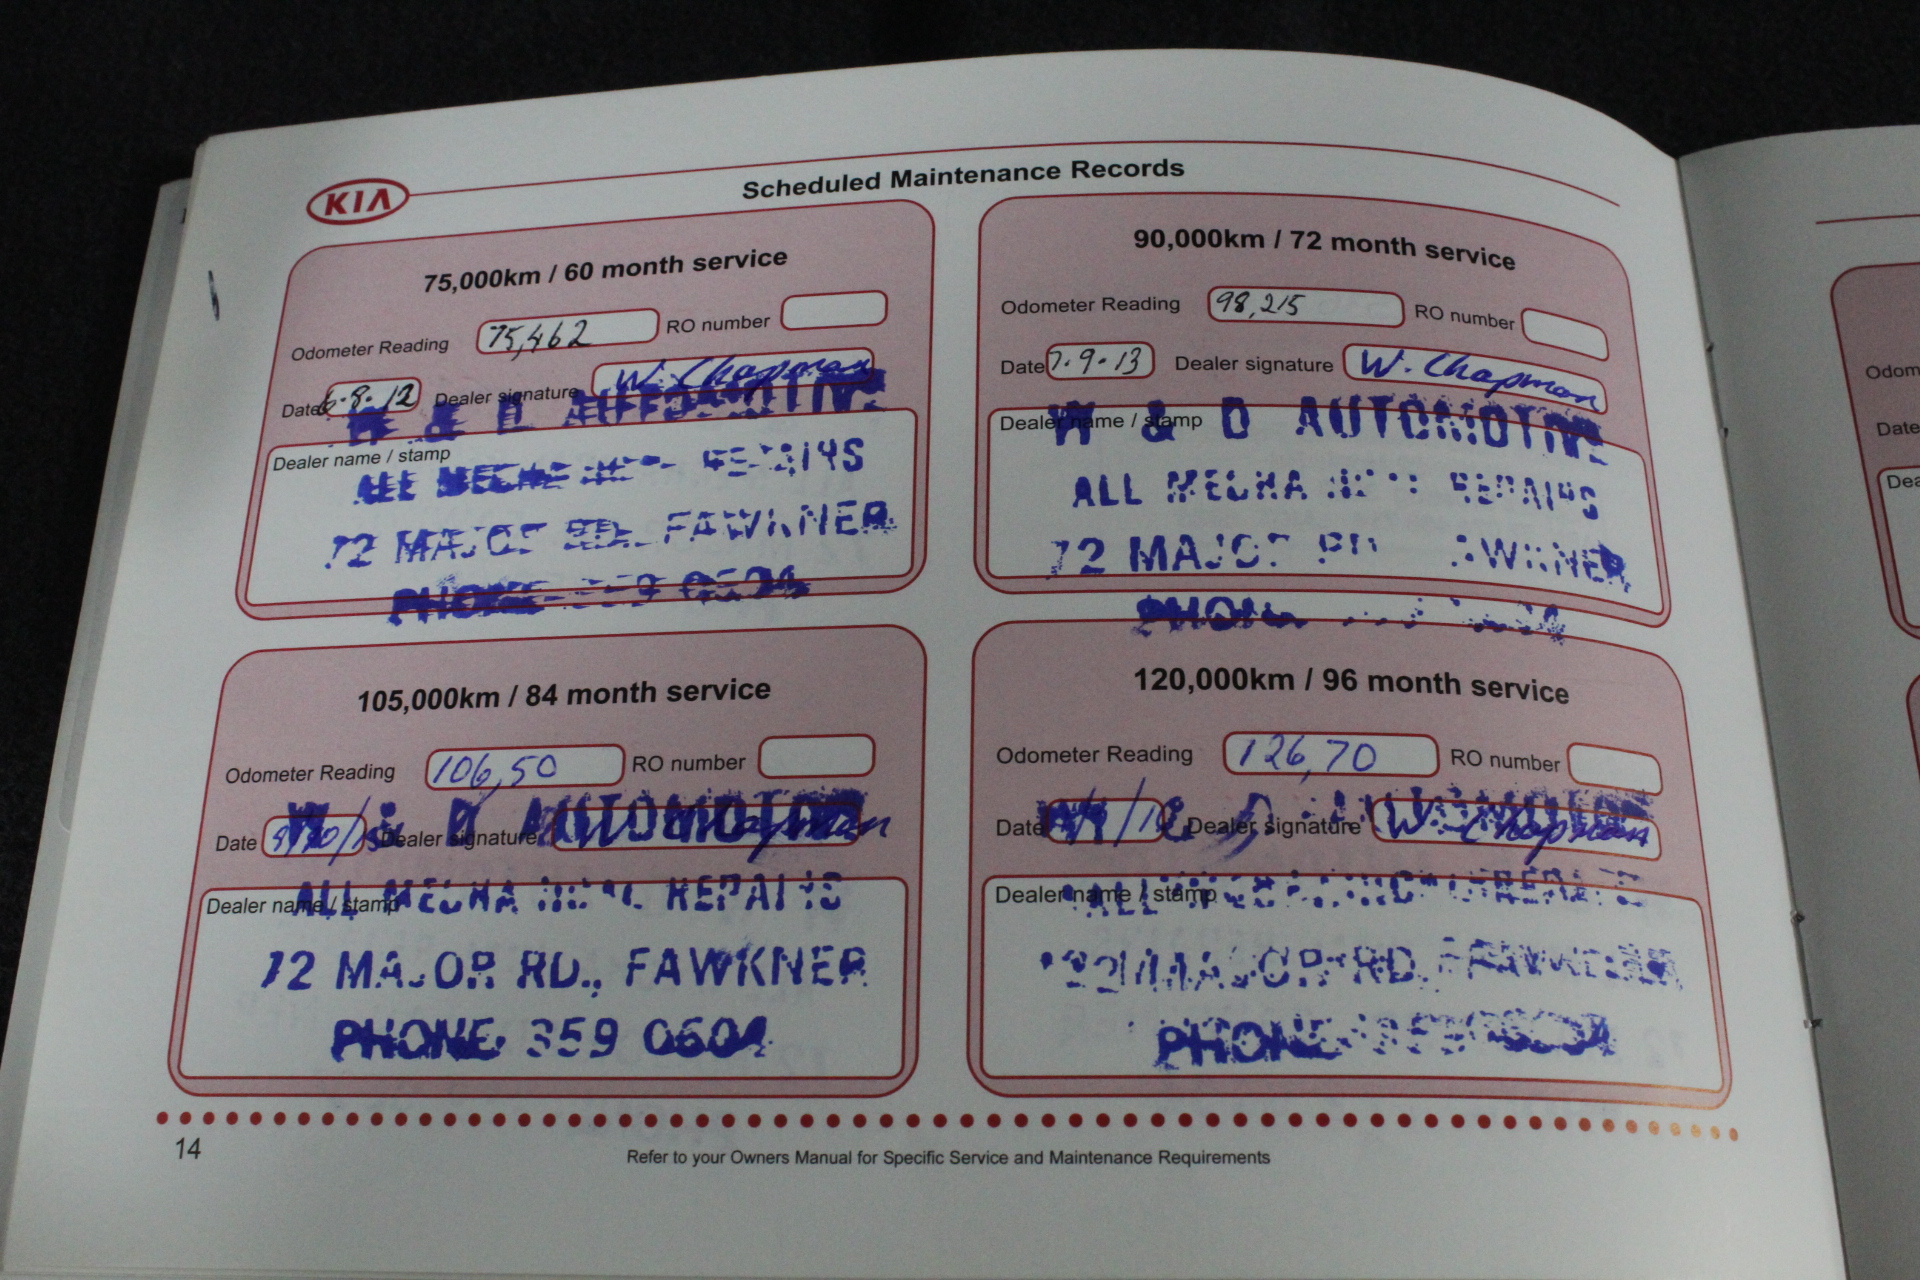 KIA
Scheduled Maintenance Records
75,000km / 60 month service
Odometer Reading 75,462 RO number
Date 6.8.12 Dealer signature W. Chapman
W & D AUTOMOTIVE
Dealer name / stamp
ALL MECHANICAL REPAIRS
72 MAJOR RD., FAWKNER
PHONE 359 0604
90,000km / 72 month service
Odometer Reading 98,215 RO number
Date 7.9.13 Dealer signature W. Chapman
W & D AUTOMOTIVE
Dealer name / stamp
ALL MECHANICAL REPAIRS
72 MAJOR RD., FAWKNER
PHONE
105,000km / 84 month service
Odometer Reading 106,50 RO number
W & D AUTOMOTIVE
Date Dealer signature W. Chapman
Dealer name / stamp
ALL MECHANICAL REPAIRS
72 MAJOR RD., FAWKNER
PHONE 359 0604
120,000km / 96 month service
Odometer Reading 126,70 RO number
Date Dealer signature W. Chapman
Dealer name / stamp
ALL MECHANICAL REPAIRS
72 MAJOR RD., FAWKNER
PHONE
14
Refer to your Owners Manual for Specific Service and Maintenance Requirements
Odom
Date
Dea